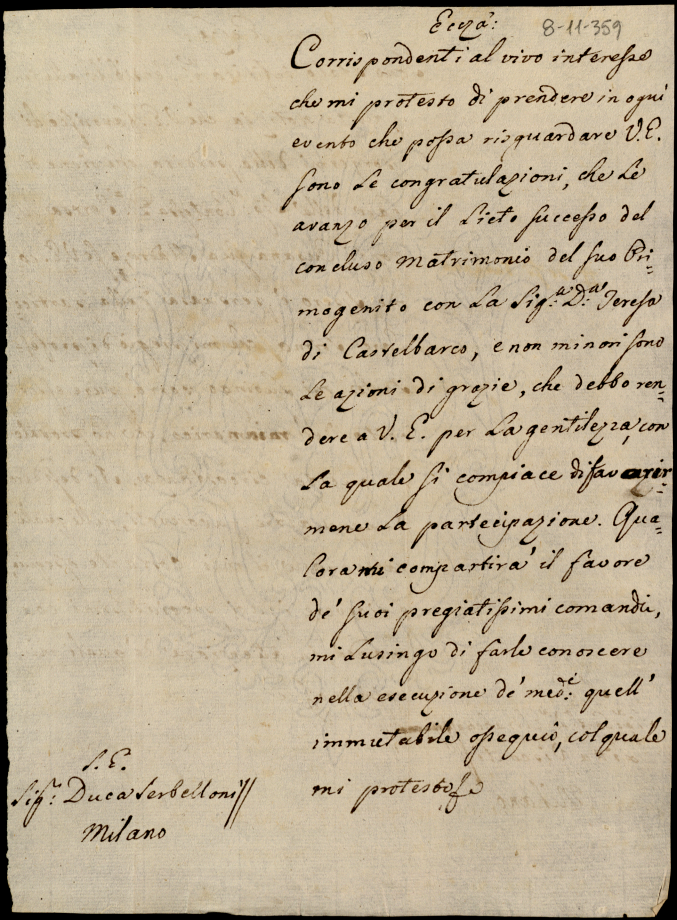 Ecc.za:
8-11-359
Corrispondenti al vivo interesse
che mi protesto di prendere in ogni
evento che possa risguardare V.E.
sono le congratulazioni, che le
avanzo per il lieto successo del
concluso Matrimonio del suo Pri=
mogenito con la Sig.ra D.a Teresa
di Castelbarco, e non minori sono
le azioni di grazie, che debbo ren=
dere a V. E. per la gentilezza, con
la quale si compiace di favorir=
mene la partecipazione. Qua=
lora mi compartirà il favore
de' suoi pregiatissimi comandi,
mi lusingo di farle conoscere
nella esecuzione de' med.i: quell'
immutabile ossequio, col quale
mi protesto
S. E.
Sig.r: Duca Serbelloni //
Milano